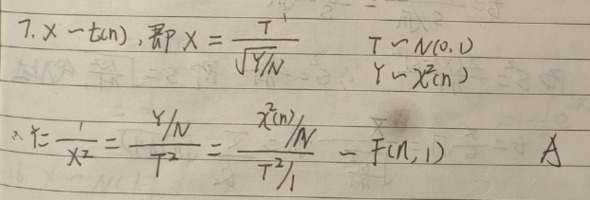 7. X ~ t(n), 即 X = T / √(Y/N) T ~ N(0,1)
Y ~ χ²(n)
∴ Y = 1/X² = (Y/N) / T² = (χ²(n)/N) / (T²/1) ~ F(n,1) A